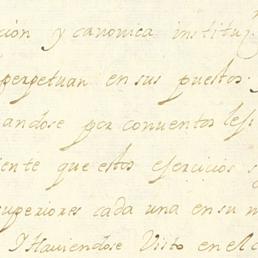 ción y canonica institui
perpetuan en sus puestos.
andose por conventos les
iente que estos exercicios s
superiores cada una en su m
Y Haviendose Visto en el c